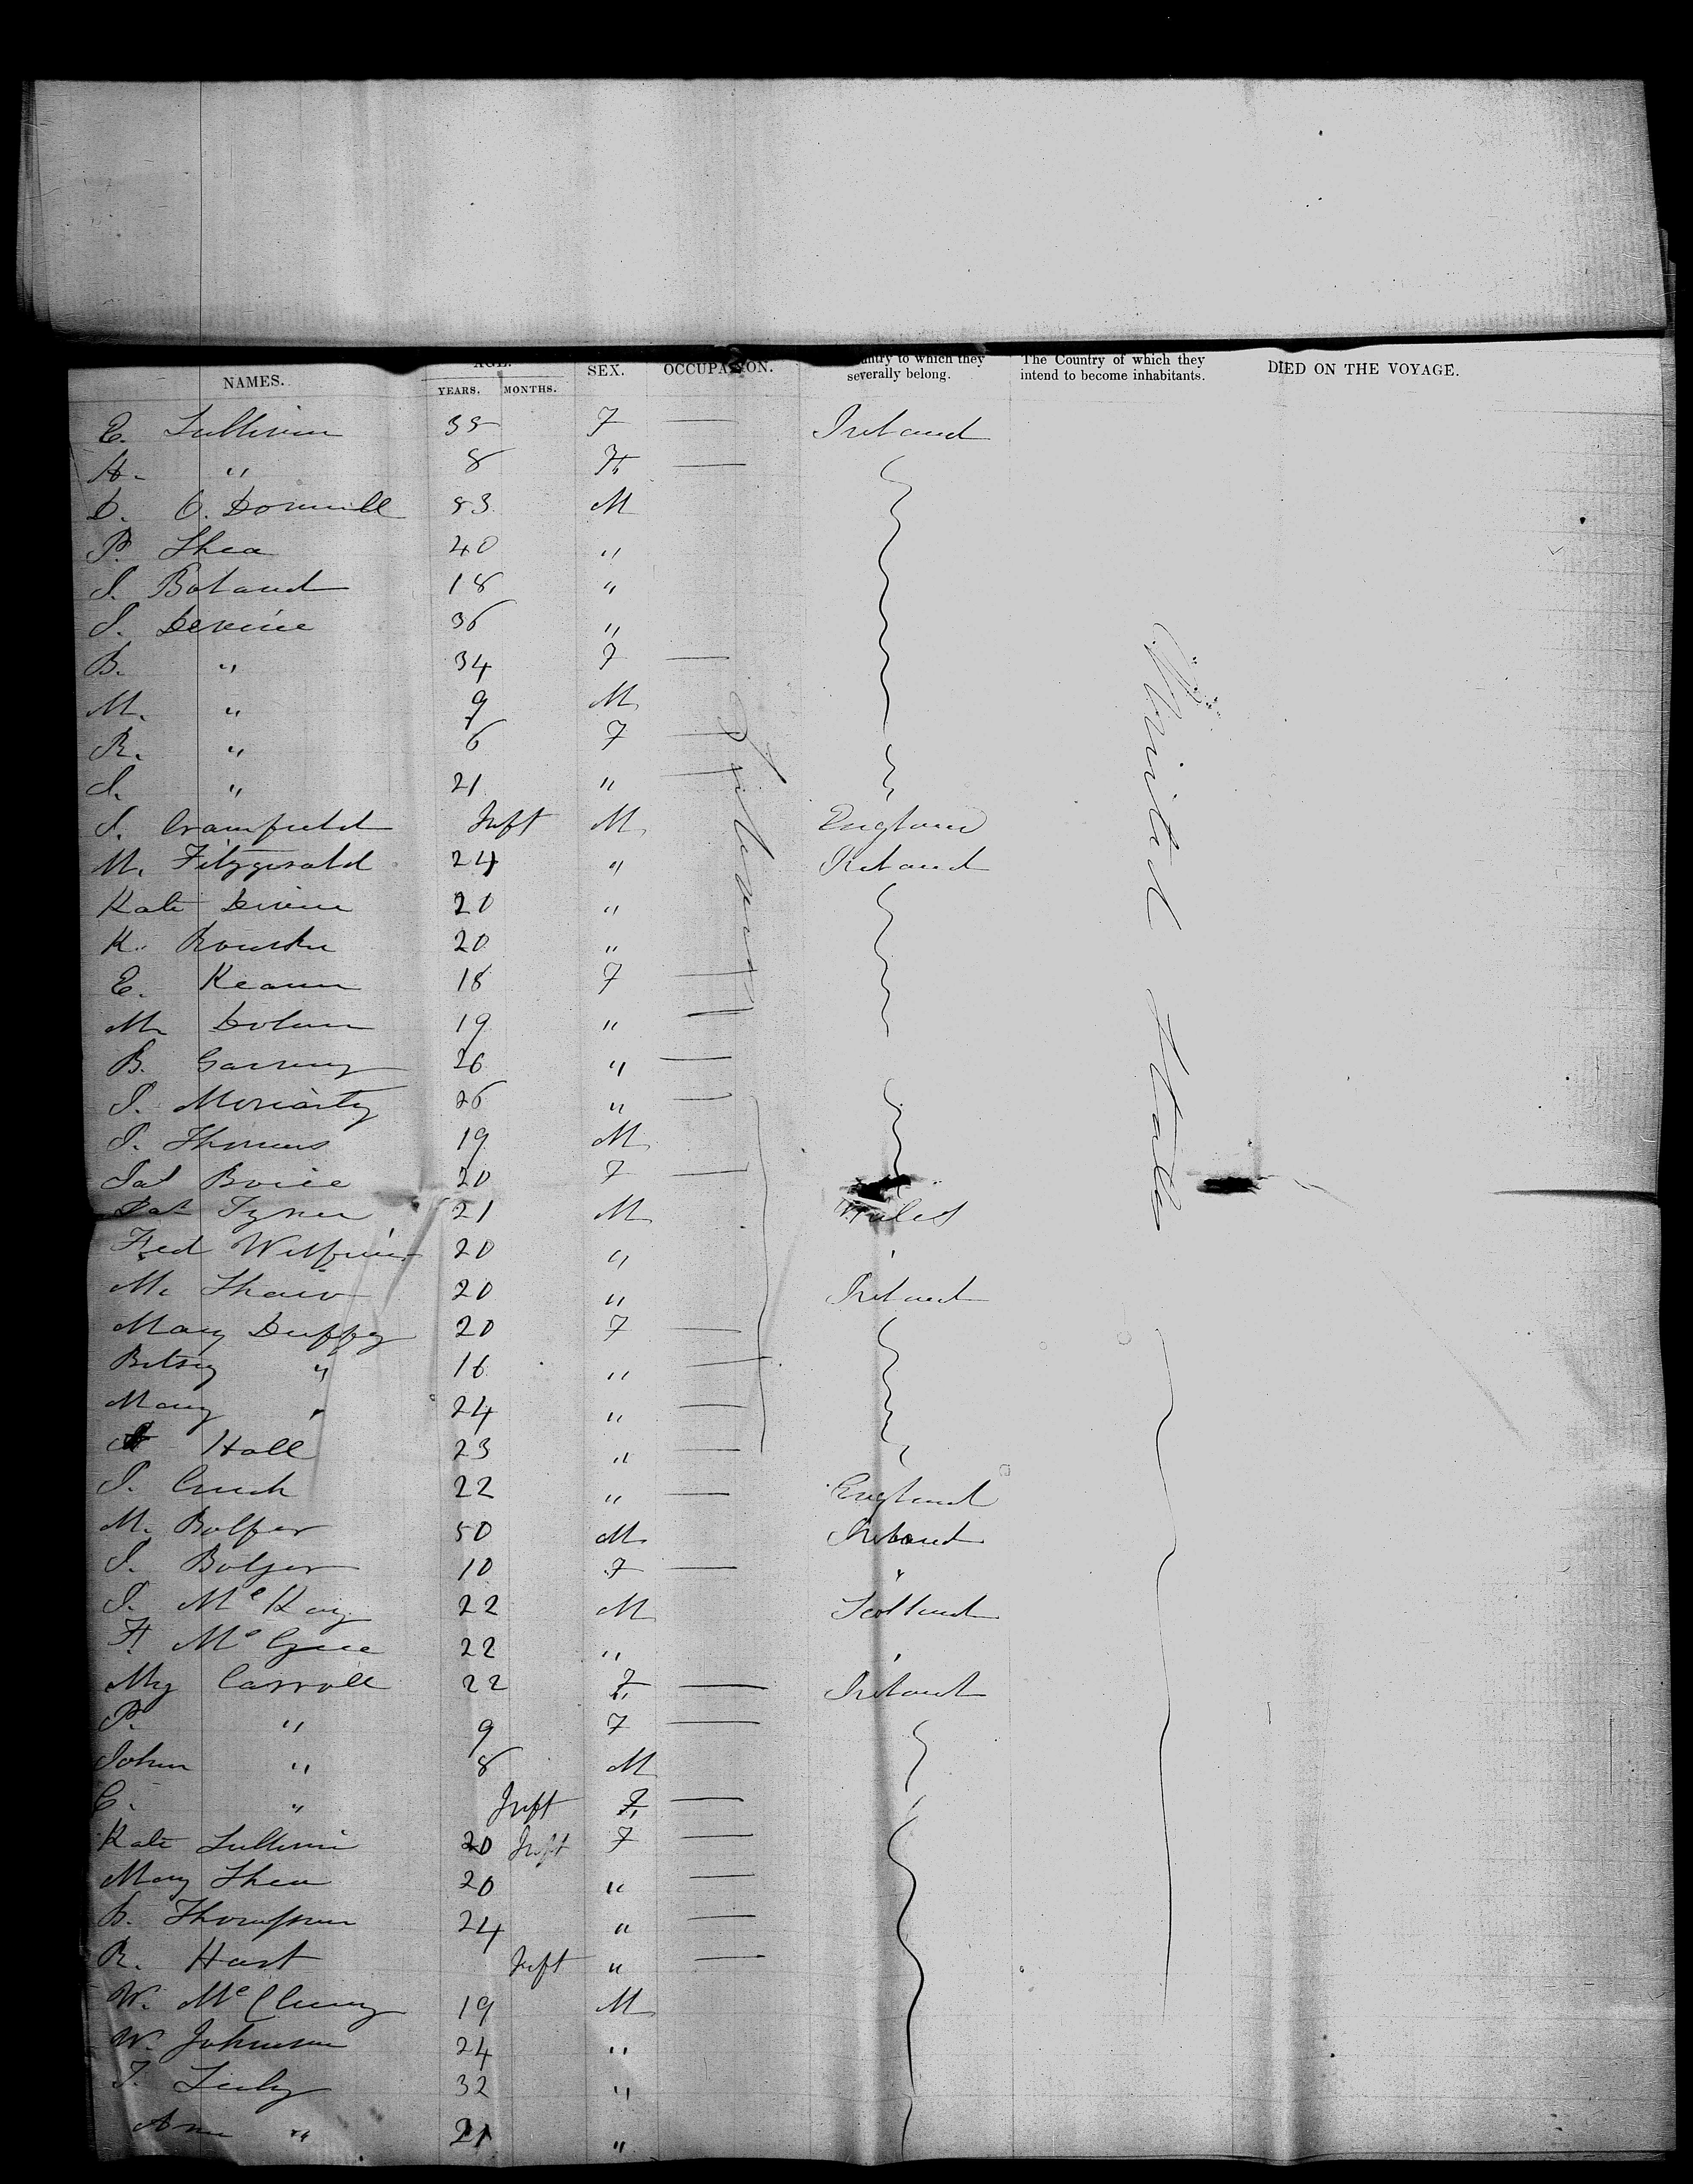 NAMES. AGE. YEARS. MONTHS. SEX. OCCUPATION. Country to which they severally belong. The Country of which they intend to become inhabitants. DIED ON THE VOYAGE.
E. Sullivan 35 F — Ireland
H. " 8 F —
D. O. Donnell 53 M
P. Shea 40 "
J. Boland 18 "
J. Devine 36 "
B. " 34 F —
M. " 9 M
R. " 6 F —
J. " 21 " —
J. Cramfield Inft M England
M. Fitzgerald 24 " Ireland
Kate Divine 20 "
K. Rourke 20 "
E. Keann 18 F —
M. Dolan 19 " —
B. 26 " —
J. Moriarty 26 " —
J. Thomas 19 M
Pat Boice 20 F —
Pat 21 M Wales
Fred 20 "
M. Shaw 20 " Ireland
Mary Duffy 20 F —
Betsy " 16 " —
Mary " 24 " —
Hall 23 " —
J. 22 " — England
M. Bolger 50 M Ireland
J. Bolger 10 F — "
J. McKay 22 M Scotland
F. 22 " "
My Carroll 22 F — Ireland
P. " 9 F —
John " 8 M
C. " Inft F —
Kate Sullivan 20 Inft F —
Mary Shea 20 " —
B. Thompson 24 " —
R. Hart Inft " —
W. McClung 19 M
W. Johnson 24 "
T. 32 "
Ann " 21 "
United States